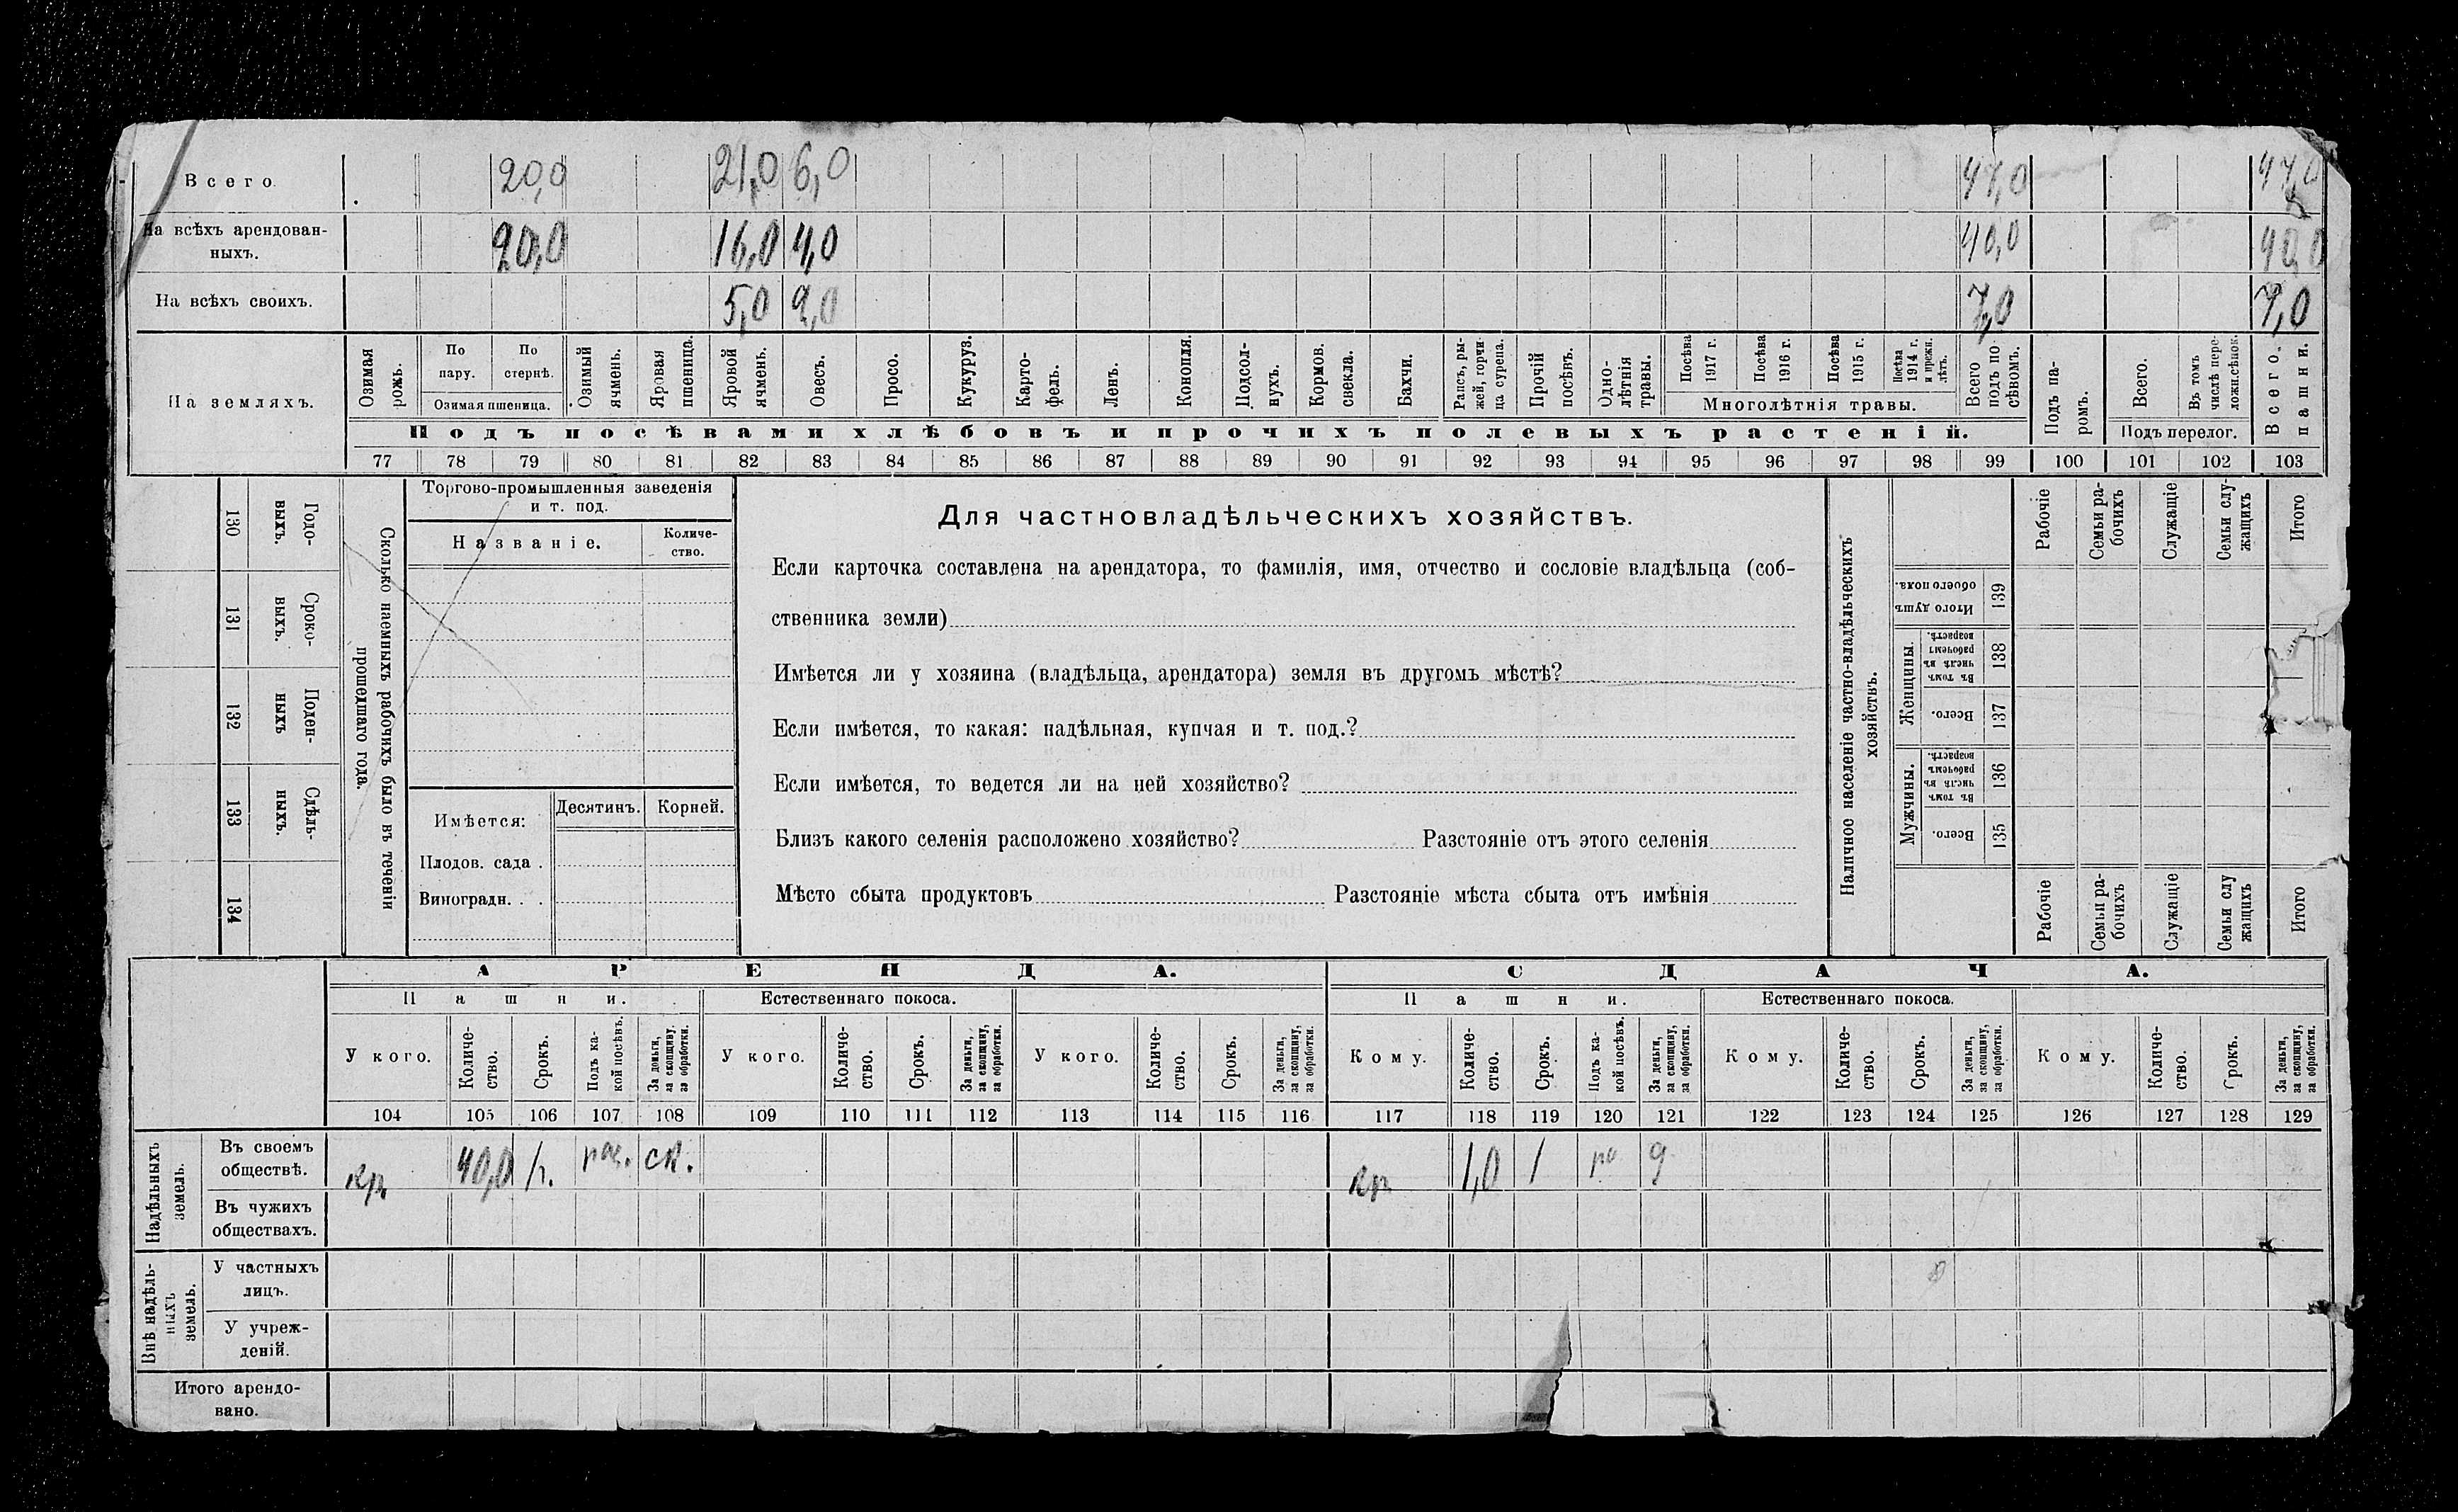 Всего. 20,0 21,0 6,0 47,0 47,0
На всѣхъ арендован-
ныхъ. 20,0 16,0 4,0 40,0 40,0
На всѣхъ своихъ. 5,0 2,0 7,0 7,0
На земляхъ.
Озимая рожь.
По пару.
По стернѣ.
Озимая пшеница.
Озимый ячмень.
Яровая пшеница.
Яровой ячмень.
Овесъ.
Просо.
Кукуруз.
Карто-
фель.
Ленъ.
Конопля.
Подсол-
нухъ.
Кормов. свекла.
Бахчи.
Рапсъ, ры-
жей, горчи-
ца сурепа.
Прочій посѣвъ.
Одно-
лѣтнія травы.
Посѣва 1917 г.
Посѣва 1916 г.
Посѣва 1915 г.
Посѣва 1914 г. и прежн. лѣтъ.
Многолѣтнія травы.
Всего подъ по-
сѣвомъ.
Подъ па-
ромъ.
Всего.
Въ томъ числѣ пере-
ложн.сѣнок.
Подъ перелог.
Всего пашни.
Подъ посѣвами хлѣбовъ и прочихъ полевыхъ растеній.
77 78 79 80 81 82 83 84 85 86 87 88 89 90 91 92 93 94 95 96 97 98 99 100 101 102 103
130 Годо-
выхъ.
131 Сроко-
выхъ.
132 Поден-
ныхъ
133 Сдѣль-
ныхъ.
134
Сколько наемныхъ рабочихъ было въ теченіи
прошедшаго года.
Торгово-промышленныя заведенія
и т. под.
Названіе.
Количе-
ство.
Имѣется: Десятинъ. Корней.
Плодов. сада .
Виноградн. . .
Для частновладѣльческихъ хозяйствъ.
Если карточка составлена на арендатора, то фамилія, имя, отчество и сословіе владѣльца (соб-
ственника земли)
Имѣется ли у хозяина (владѣльца, арендатора) земля въ другомъ мѣстѣ?
Если имѣется, то какая: надѣльная, купчая и т. под.?
Если имѣется, то ведется ли на ней хозяйство?
Близъ какого селенія расположено хозяйство? Разстояніе отъ этого селенія
Мѣсто сбыта продуктовъ Разстояніе мѣста сбыта отъ имѣнія
Наличное населеніе частно-владѣльческихъ
хозяйствъ.
Рабочіе
Семьи ра-
бочихъ
Служащіе
Семьи слу-
жащихъ
Итого
Итого душъ обоего пола. 139
Женщины.
Въ томъ числѣ въ рабочемъ возрастѣ. 138
Всего. 137
Мужчины.
Въ томъ числѣ въ рабочемъ возрастѣ. 136
Всего. 135
Рабочіе
Семьи ра-
бочихъ
Служащіе
Семьи слу
жащихъ
Итого
АРЕНДА. СДАЧА.
Пашни. Естественнаго покоса. Пашни. Естественнаго покоса.
У кого. Количе-
ство. Срокъ. Подъ ка-
кой посѣвъ. За деньги, за скопщину, за обработки.
У кого. Количе-
ство. Срокъ. За деньги, за скопщину, за обработки.
У кого. Количе-
ство. Срокъ. За деньги, за скопщину, за обработки.
Кому. Количе-
ство. Срокъ. Подъ ка-
кой посѣвъ. За деньги, за скопщину, за обработки.
Кому. Количе-
ство. Срокъ. За деньги, за скопщину, за обработки.
Кому. Количе-
ство. Срокъ. За деньги, за скопщину, за обработки.
104 105 106 107 108 109 110 111 112 113 114 115 116 117 118 119 120 121 122 123 124 125 126 127 128 129
Надѣльныхъ земель.
Въ своемъ
обществѣ. кр. 40,0 ск. кр 1,0 1 д
Въ чужихъ
обществахъ.
Внѣ надѣль-
ныхъ земель.
У частныхъ
лицъ.
У учреж-
деній.
Итого арендо-
вано.